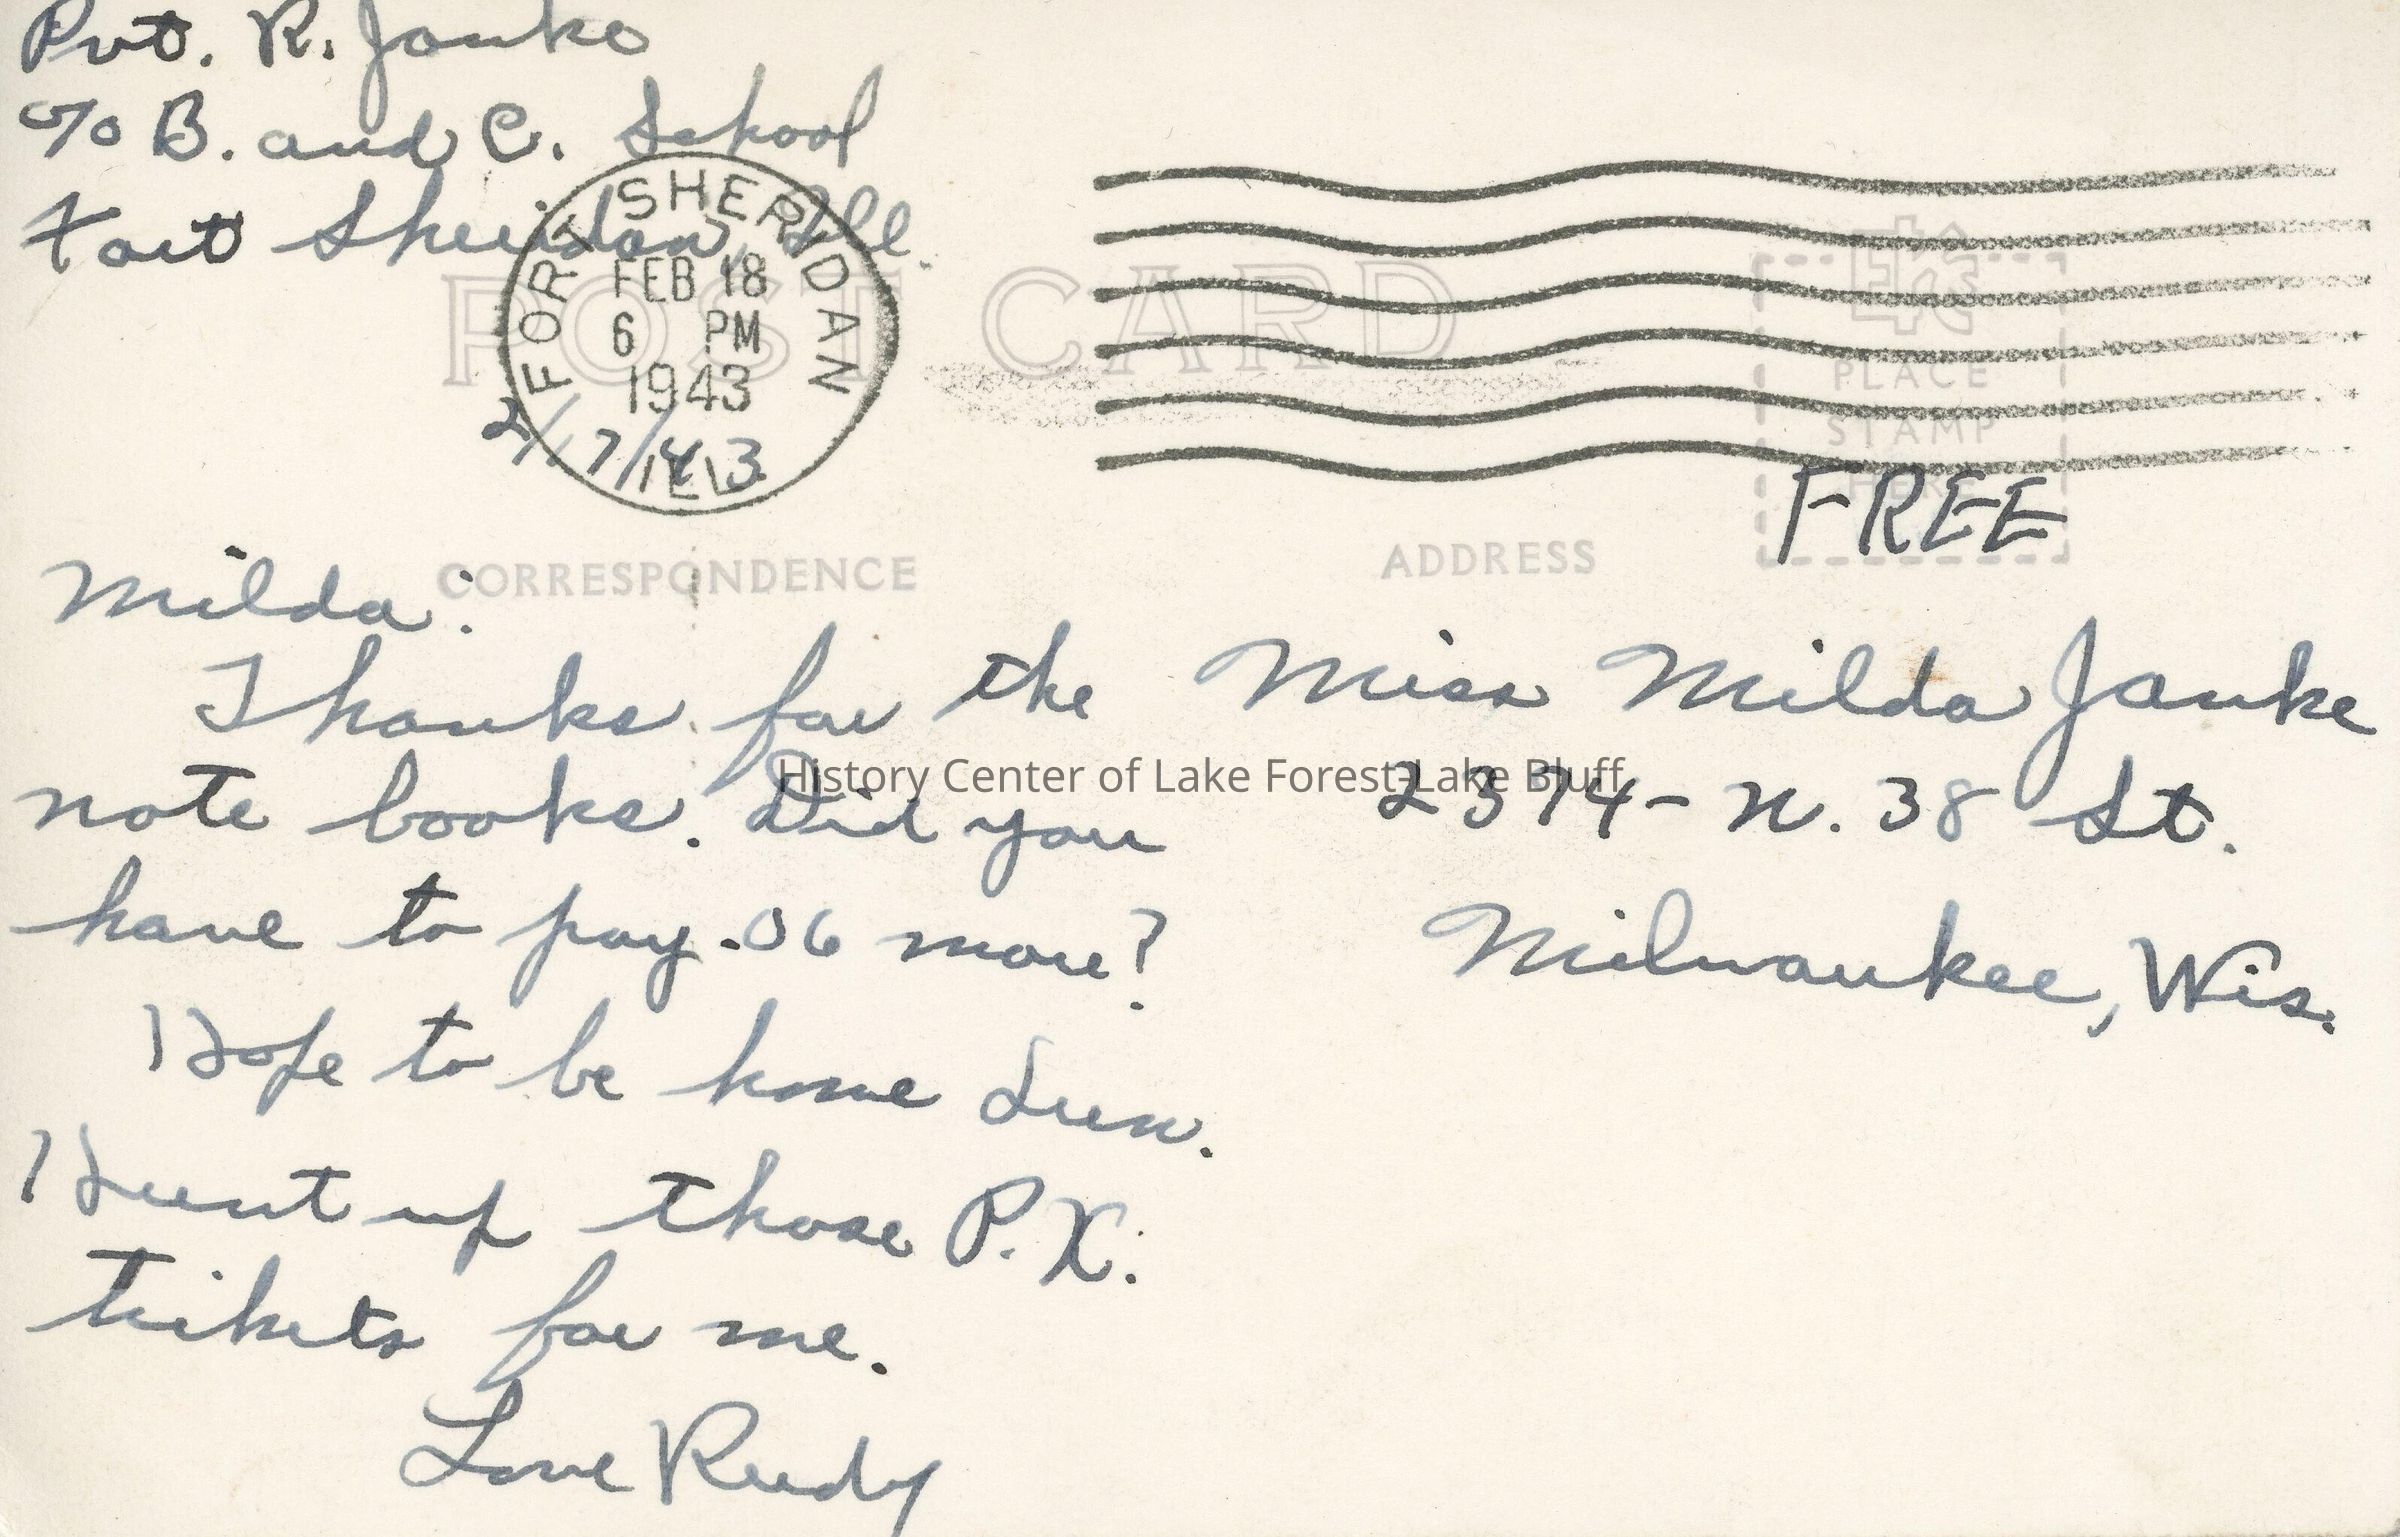 Pvt. R. Janke
c/o B. and C. School
Fort Sheridan, Ill.
POST CARD
FORT SHERIDAN
FEB 18
6 PM
1943
ILL.
2/17/43
EKC
PLACE
STAMP
HERE
FREE
CORRESPONDENCE
ADDRESS
Milda:
Thanks for the
note books. Did you
have to pay .06 more?
Hope to be home Sun.
Hunt up those P.X.
tikets for me.
Love Rudy
Miss Milda Janke
2374 - N. 38 St.
Milwaukee, Wis.
History Center of Lake Forest-Lake Bluff